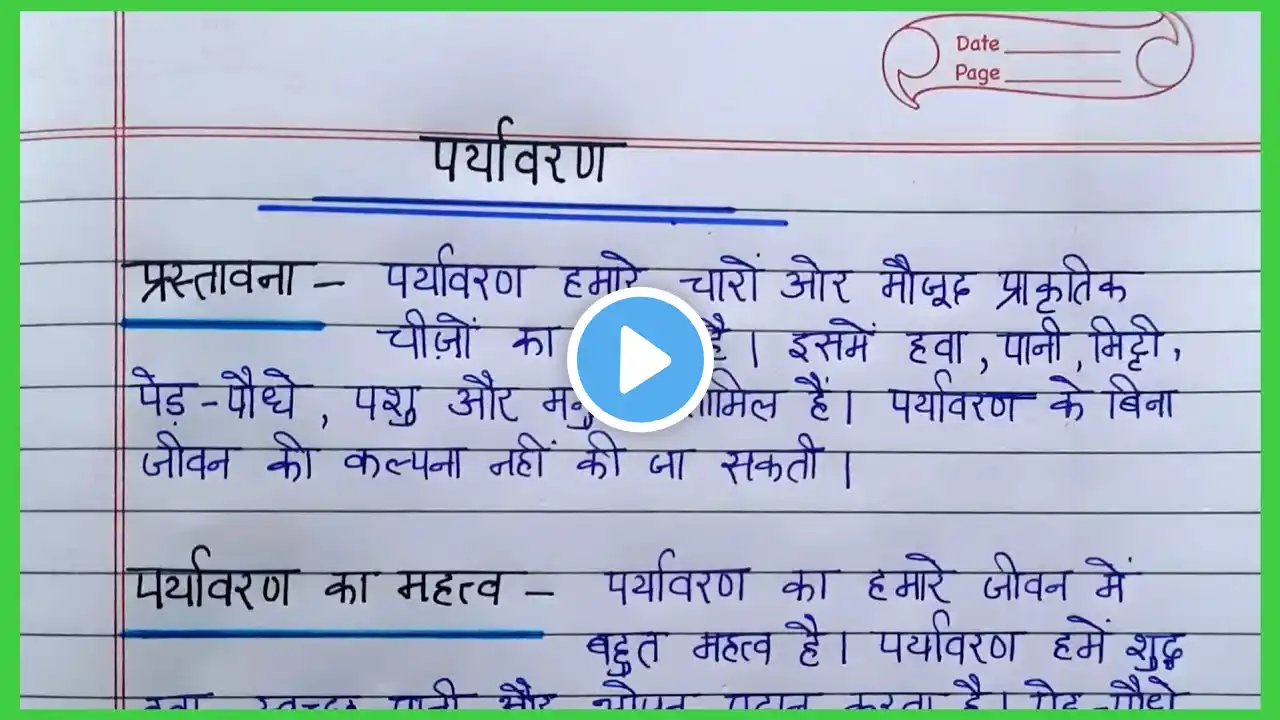 Date
Page
पर्यावरण
प्रस्तावना – पर्यावरण हमारे चारों ओर मौजूद प्राकृतिक
चीज़ों का है। इसमें हवा, पानी, मिट्टी,
पेड़-पौधे, पशु और हैं। पर्यावरण के बिना
जीवन की कल्पना नहीं की जा सकती।
पर्यावरण का महत्व – पर्यावरण का हमारे जीवन में
बहुत महत्व है। पर्यावरण हमें शुद्ध